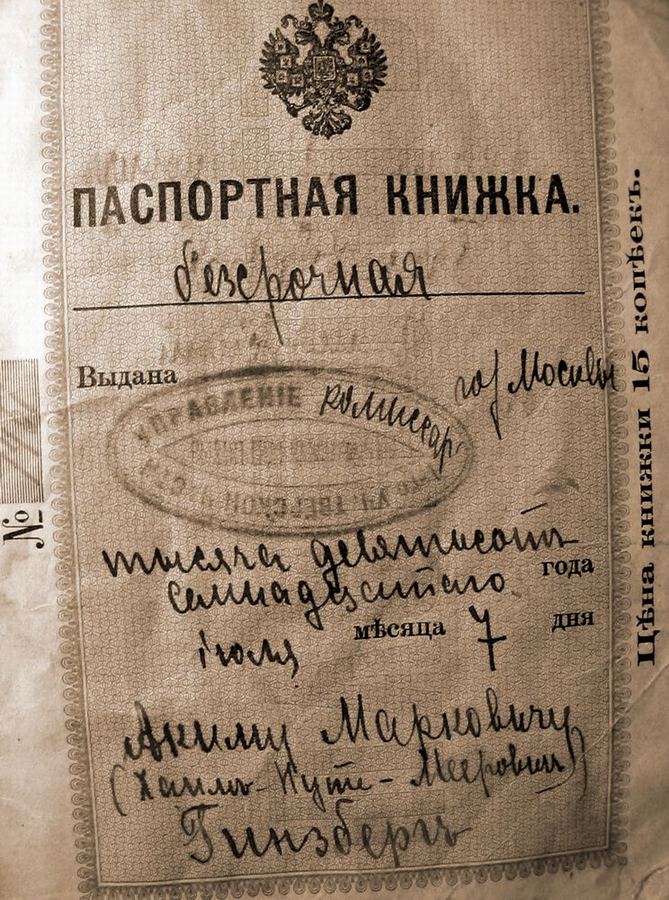 ПАСПОРТНАЯ КНИЖКА.
безсрочная
Выдана
УПРАВЛЕНІЕ
комиссар
гор Москвы
ТВЕРСКОЙ
тысяча девятьсотъ
семнадцатаго года
іюля мѣсяца 7 дня
Акиму Марковичу
(Хаимъ- - Мееровичъ)
Гинзбергъ
№
Цѣна книжки 15 копѣекъ.